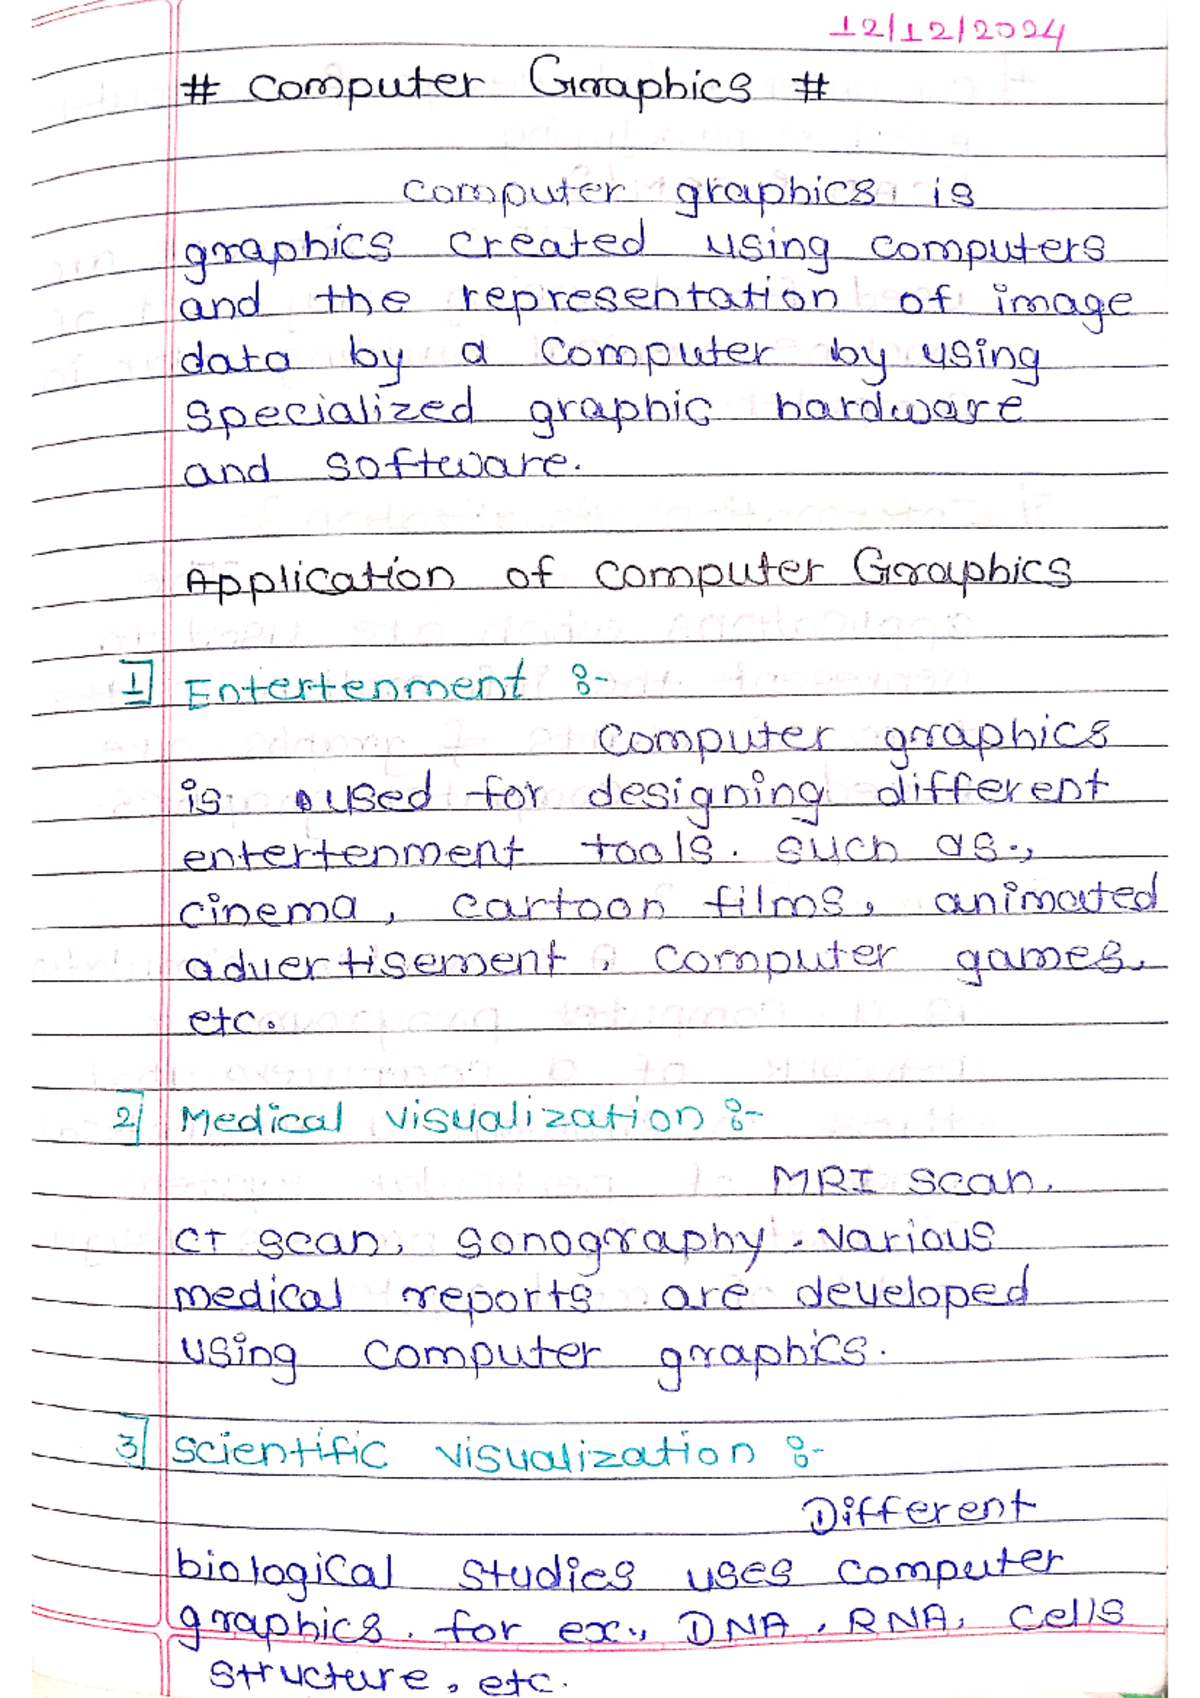 12/12/2024
# Computer Graphics #
Computer graphics is
graphics created using computers
and the representation of image
data by a computer by using
specialized graphic hardware
and software.
Application of Computer Graphics
1] Entertenment :-
Computer graphics
is used for designing different
entertenment tools. such as.,
cinema, cartoon films, animated
advertisement, computer games,
etc.
2] Medical visualization :-
MRI scan,
CT scan, sonography. Various
medical reports are developed
using computer graphics.
3] Scientific visualization :-
Different
biological studies uses computer
graphics. for ex., DNA, RNA, Cells
structure, etc.